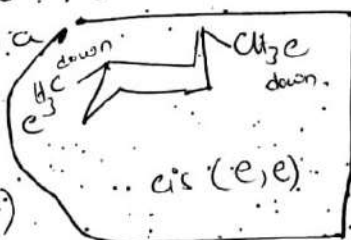 a
down
H3C
e
CH3 e
down.
cis (e,e)
)